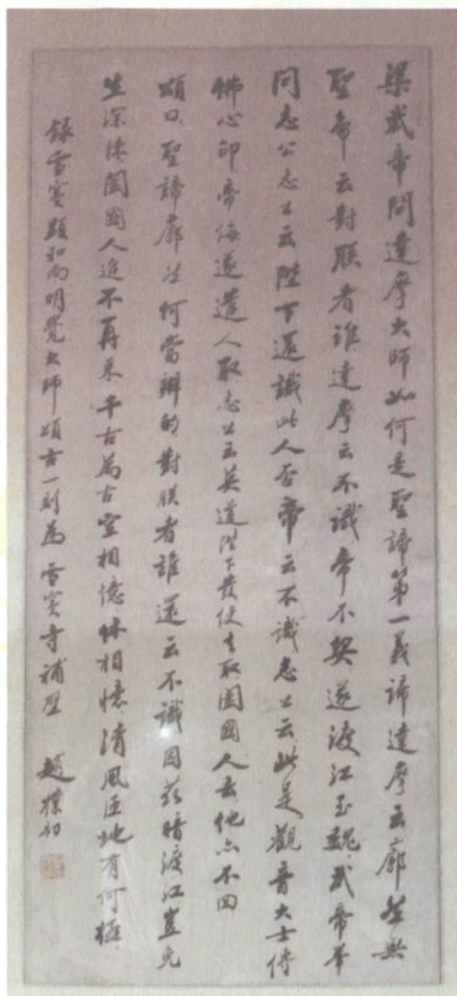 梁武帝問達摩大師如何是聖諦第一義諦達摩云廓然無
聖帝云對朕者誰達摩云不識帝不契遂渡江至魏武帝舉
問志公志公云陛下還識此人否帝云不識志公云此是觀音大士傳
佛心印帝悔遂遣人取志公云莫道陛下發使去取闔國人去他亦不回
頌曰聖諦廓然何當辨的對朕者誰還云不識因茲暗渡江豈免
生深棘闔國人追不再來千古萬古空相憶休相憶清風匝地有何極
錄雪竇顯和尚明覺大師頌古一則為雪竇寺補壁 趙樸初